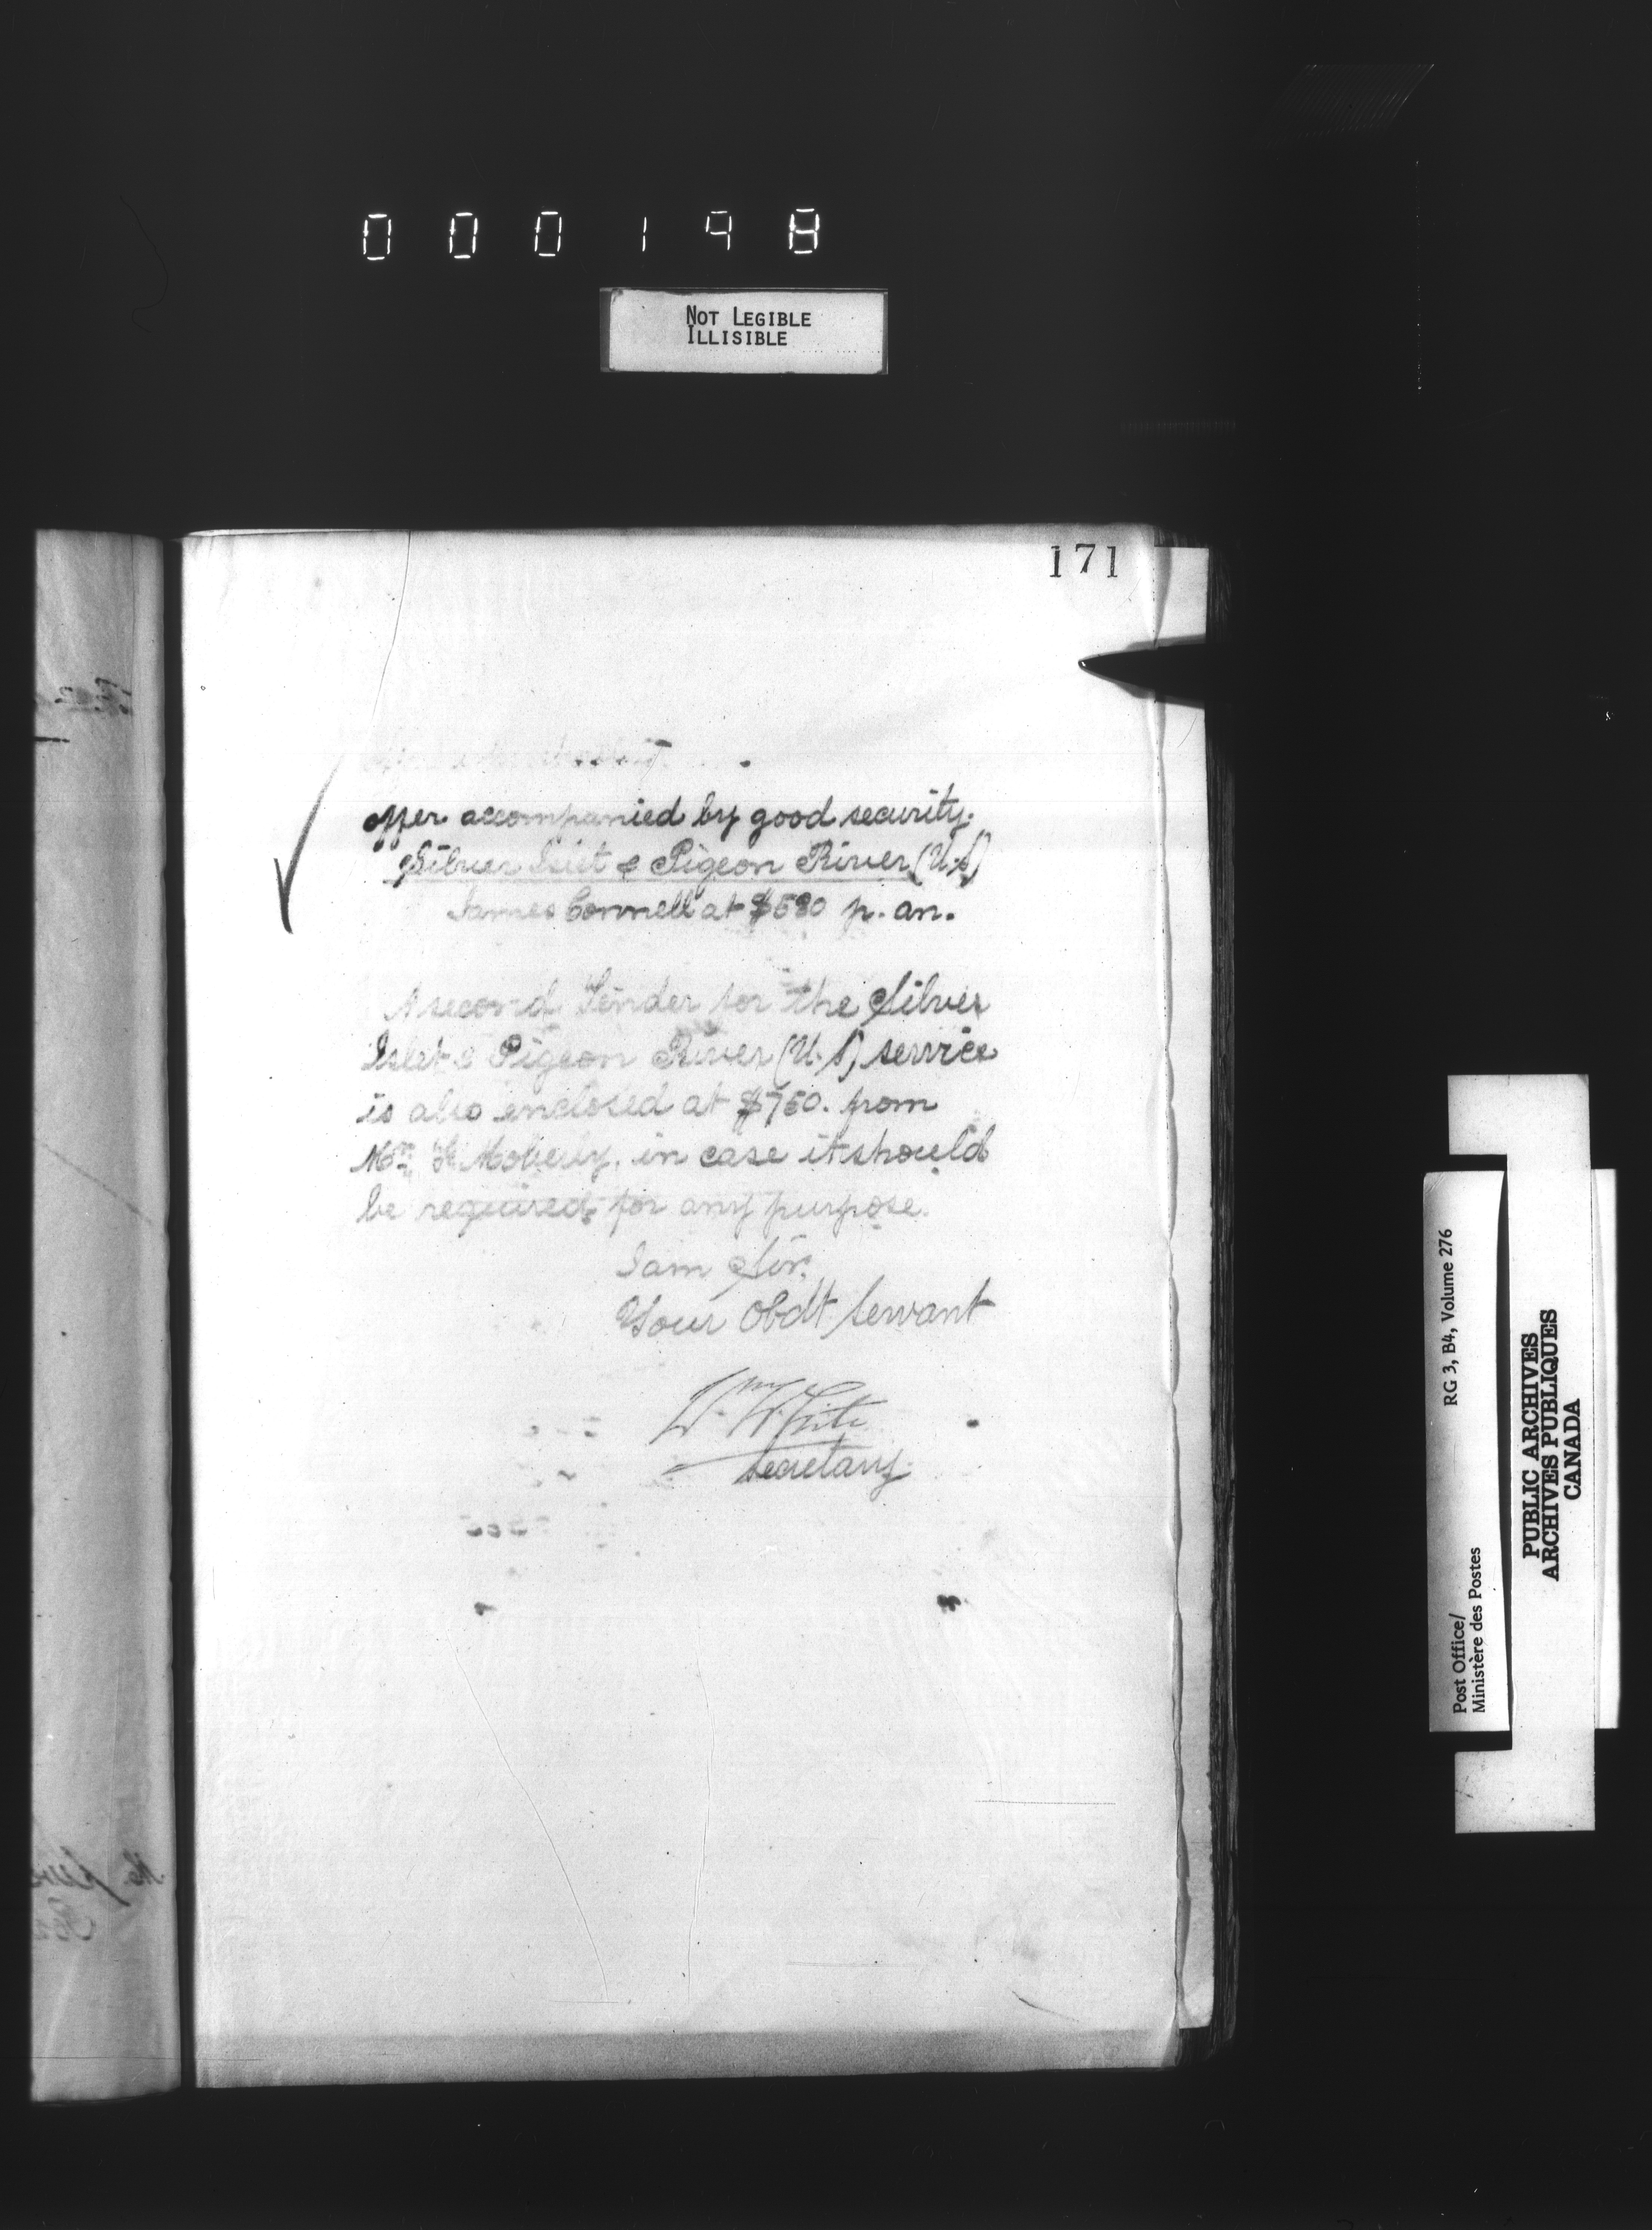 000198
NOT LEGIBLE
ILLISIBLE
171
offer accompanied by good security.
Silver Islet & Pigeon River (U.S)
James Connell at $580 p. an.
A second Tender for the Silver
Islet & Pigeon River (U.S) service
is also enclosed at $750. from
Mr. H. Moberly, in case it should
be required for any purpose.
I am Sir,
Your Obdt Servant
Wm White
Secretary
Post Office/
Ministère des Postes
RG 3, B4, Volume 276
PUBLIC ARCHIVES
ARCHIVES PUBLIQUES
CANADA